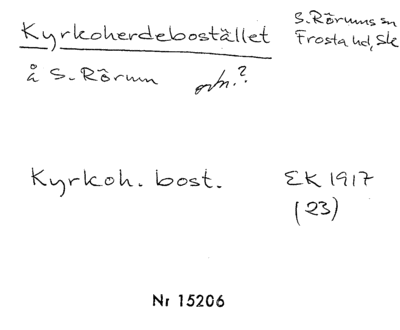 Kyrkoherdebostället
S. Rörums sn
Frosta hd, Sk
å S. Rörum ortn.?
Kyrkoh. bost.
EK 1917
(23)
Nr 15206